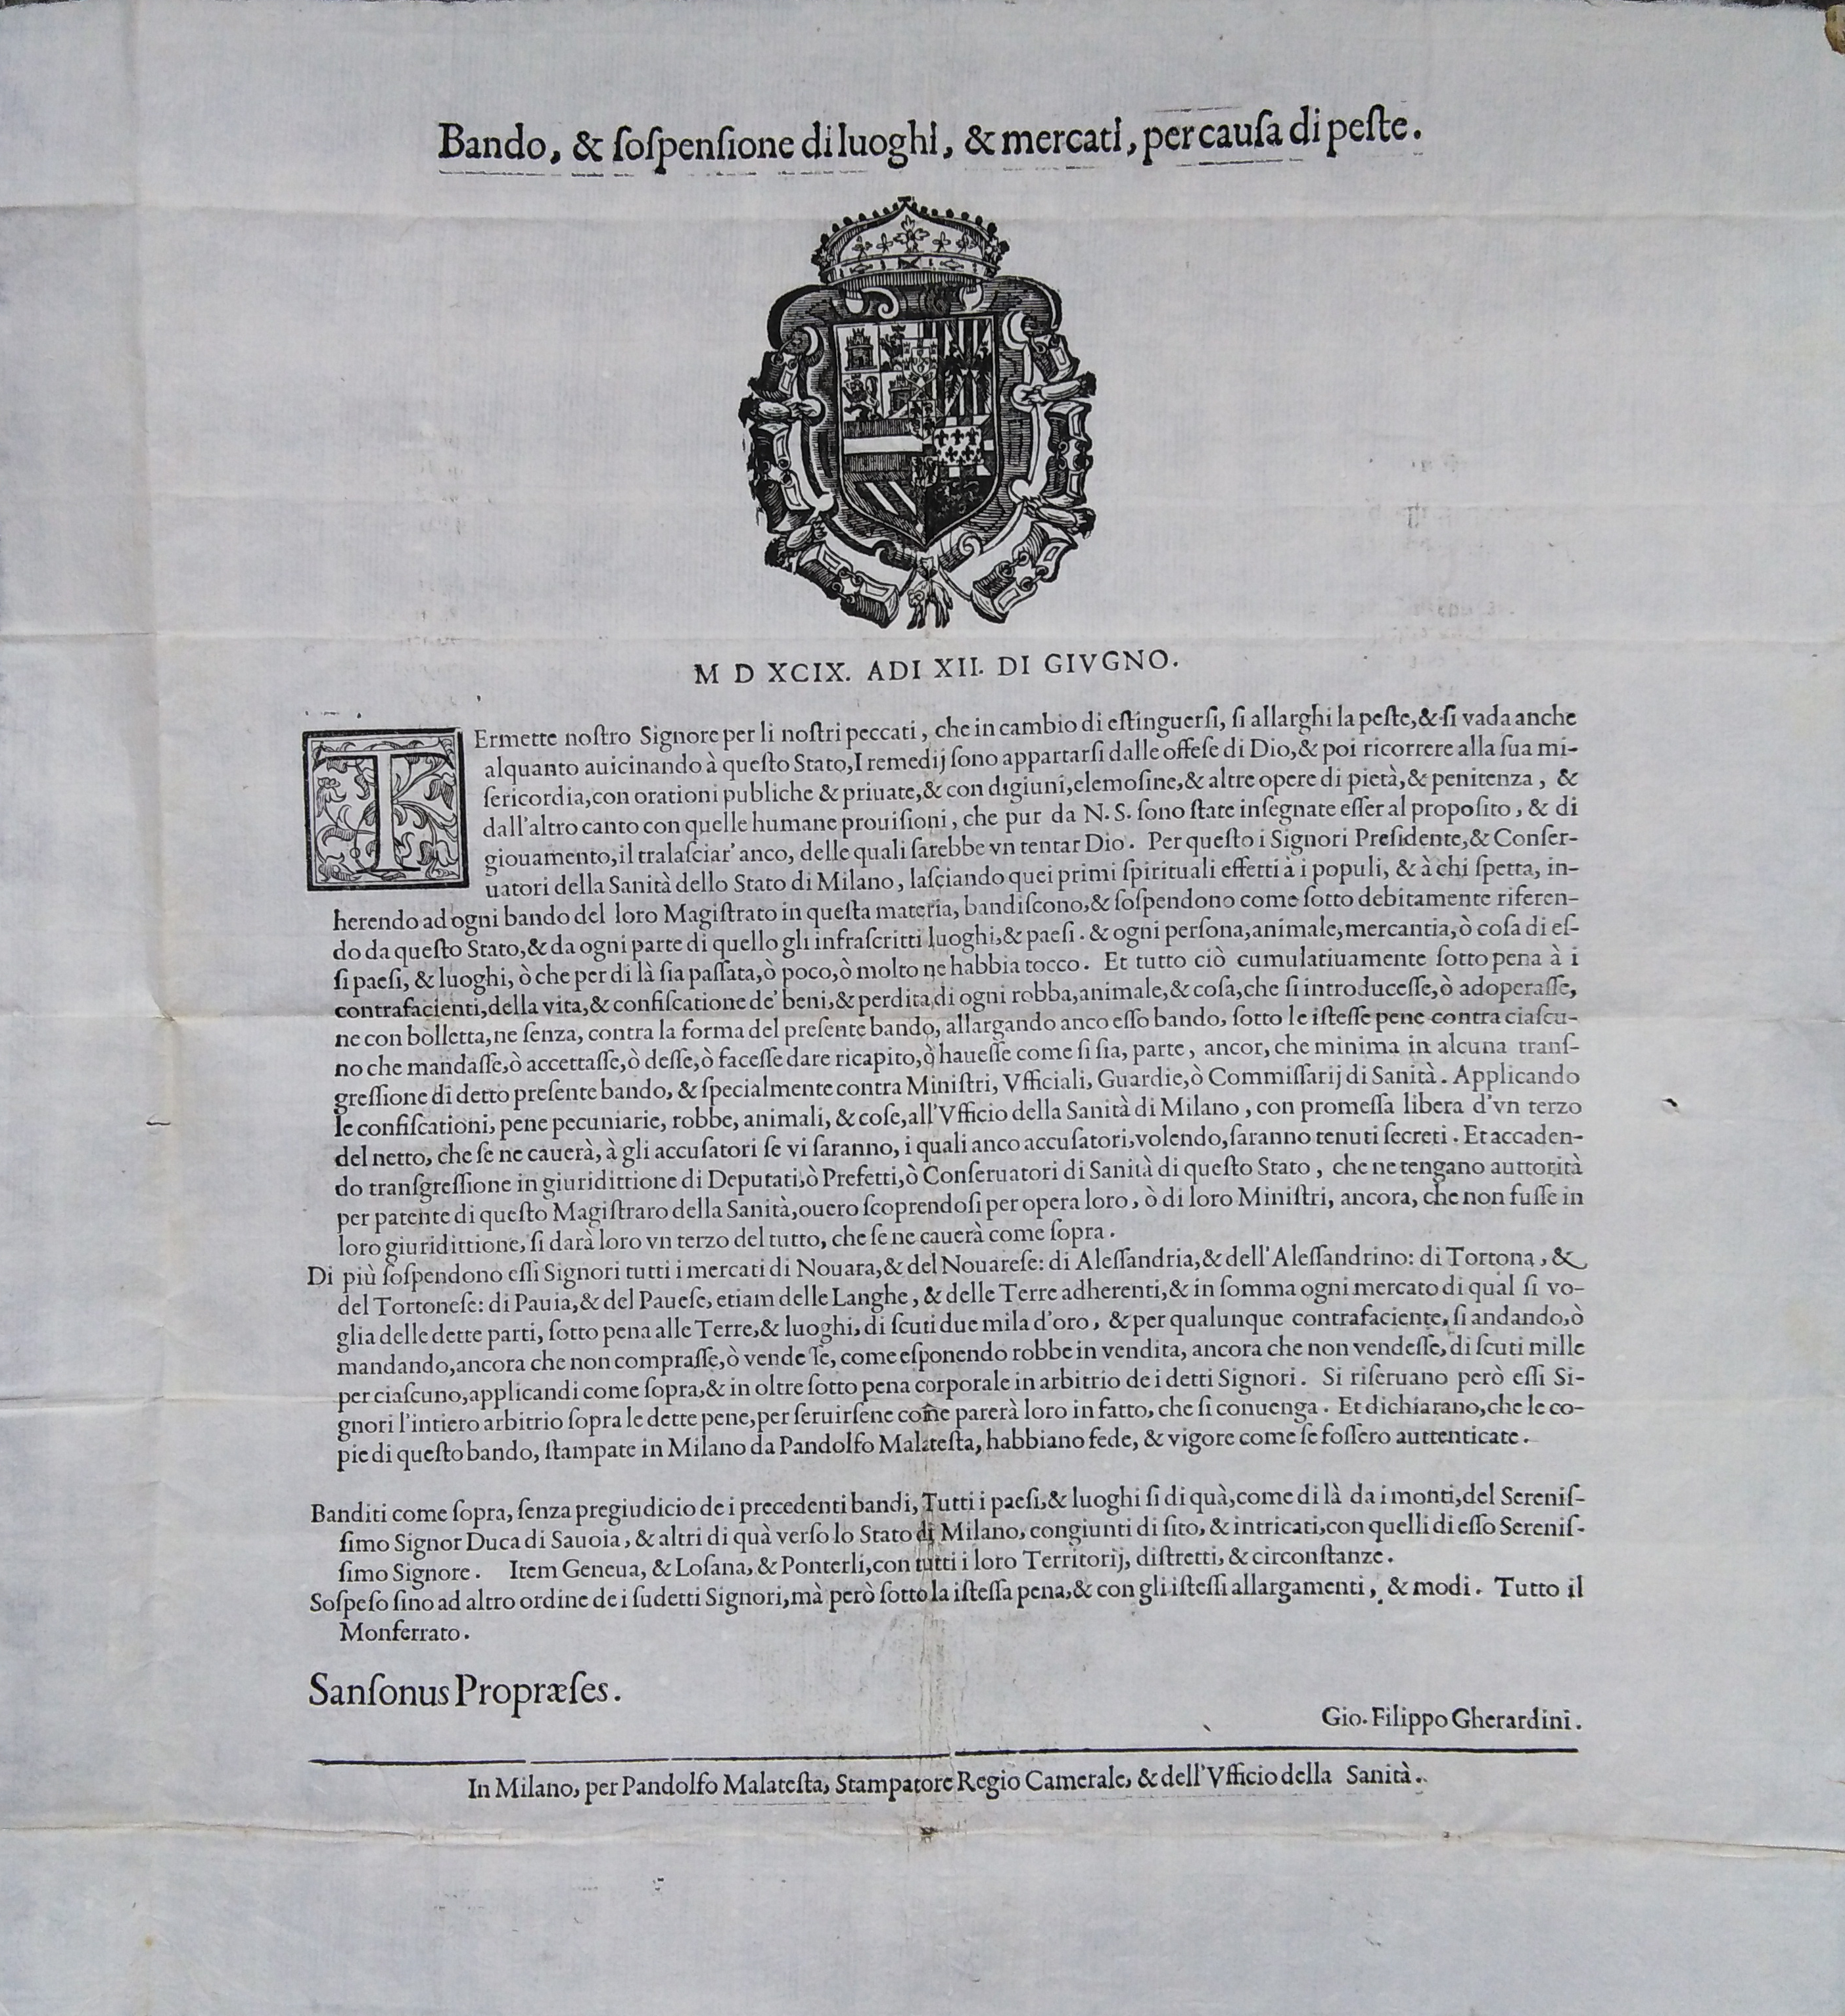 Bando, & ſoſpenſione di luoghi, & mercati, per cauſa di peſte.
M D XCIX. ADI XII. DI GIVGNO.
TErmette noſtro Signore per li noſtri peccati, che in cambio di eſtinguerſi, ſi allarghi la peſte,& ſi vada anche
alquanto auicinando à queſto Stato,I remedij ſono appartarſi dalle offeſe di Dio,& poi ricorrere alla ſua mi-
ſericordia,con orationi publiche & priuate,& con digiuni,elemoſine,& altre opere di pietà,& penitenza, &
dall'altro canto con quelle humane prouiſioni, che pur da N. S. ſono ſtate inſegnate eſſer al propoſito, & di
giouamento,il tralaſciar' anco, delle quali ſarebbe vn tentar Dio. Per queſto i Signori Preſidente,& Conſer-
uatori della Sanità dello Stato di Milano, laſciando quei primi ſpirituali effetti à i populi, & à chi ſpetta, in-
herendo ad ogni bando del loro Magiſtrato in queſta materia, bandiſcono,& ſoſpendono come ſotto debitamente riferen-
do da queſto Stato,& da ogni parte di quello gli infraſcritti luoghi,& paeſi. & ogni perſona,animale,mercantia,ò coſa di eſ-
ſi paeſi, & luoghi, ò che per di là ſia paſſata,ò poco,ò molto ne habbia tocco. Et tutto ciò cumulatiuamente ſotto pena à i
contrafacienti,della vita,& confiſcatione de' beni,& perdita di ogni robba,animale,& coſa,che ſi introduceſſe,ò adoperaſſe,
ne con bolletta,ne ſenza, contra la forma del preſente bando, allargando anco eſſo bando, ſotto le iſteſſe pene contra ciaſcu-
no che mandaſſe,ò accettaſſe,ò deſſe,ò faceſſe dare ricapito,ò haueſſe come ſi ſia, parte, ancor, che minima in alcuna tranſ-
greſſione di detto preſente bando, & ſpecialmente contra Miniſtri, Vfficiali, Guardie,ò Commiſſarij di Sanità. Applicando
le confiſcationi, pene pecuniarie, robbe, animali, & coſe,all'Vfficio della Sanità di Milano, con promeſſa libera d'vn terzo
del netto, che ſe ne cauerà, à gli accuſatori ſe vi ſaranno, i quali anco accuſatori,volendo,ſaranno tenuti ſecreti. Et accaden-
do tranſgreſſione in giuridittione di Deputati,ò Prefetti,ò Conſeruatori di Sanità di queſto Stato, che ne tengano auttorità
per patente di queſto Magiſtraro della Sanità,ouero ſcoprendoſi per opera loro, ò di loro Miniſtri, ancora, che non fuſſe in
loro giuridittione, ſi darà loro vn terzo del tutto, che ſe ne cauerà come ſopra.
Di più ſoſpendono eſſi Signori tutti i mercati di Nouara,& del Nouareſe: di Aleſſandria,& dell'Aleſſandrino: di Tortona, &
del Tortoneſe: di Pauia,& del Paueſe, etiam delle Langhe, & delle Terre adherenti,& in ſomma ogni mercato di qual ſi vo-
glia delle dette parti, ſotto pena alle Terre,& luoghi, di ſcuti due mila d'oro, & per qualunque contrafaciente, ſi andando,ò
mandando,ancora che non compraſſe,ò vende ſe, come eſponendo robbe in vendita, ancora che non vendeſſe, di ſcuti mille
per ciaſcuno,applicandi come ſopra,& in oltre ſotto pena corporale in arbitrio de i detti Signori. Si riſeruano però eſſi Si-
gnori l'intiero arbitrio ſopra le dette pene,per ſeruirſene come parerà loro in fatto, che ſi conuenga. Et dichiarano,che le co-
pie di queſto bando, ſtampate in Milano da Pandolfo Malateſta, habbiano fede, & vigore come ſe foſſero auttenticate.
Banditi come ſopra, ſenza pregiudicio de i precedenti bandi, Tutti i paeſi,& luoghi ſi di quà,come di là da i monti,del Sereniſ-
ſimo Signor Duca di Sauoia, & altri di quà verſo lo Stato di Milano, congiunti di ſito, & intricati,con quelli di eſſo Sereniſ-
ſimo Signore. Item Geneua, & Loſana, & Ponterli,con tutti i loro Territorij, diſtretti, & circonſtanze.
Soſpeſo ſino ad altro ordine de i ſudetti Signori,mà però ſotto la iſteſſa pena,& con gli iſteſſi allargamenti, & modi. Tutto il
Monferrato.
Sanſonus Propræſes.
Gio. Filippo Gherardini.
In Milano, per Pandolfo Malateſta, Stampatore Regio Camerale, & dell'Vfficio della Sanità.